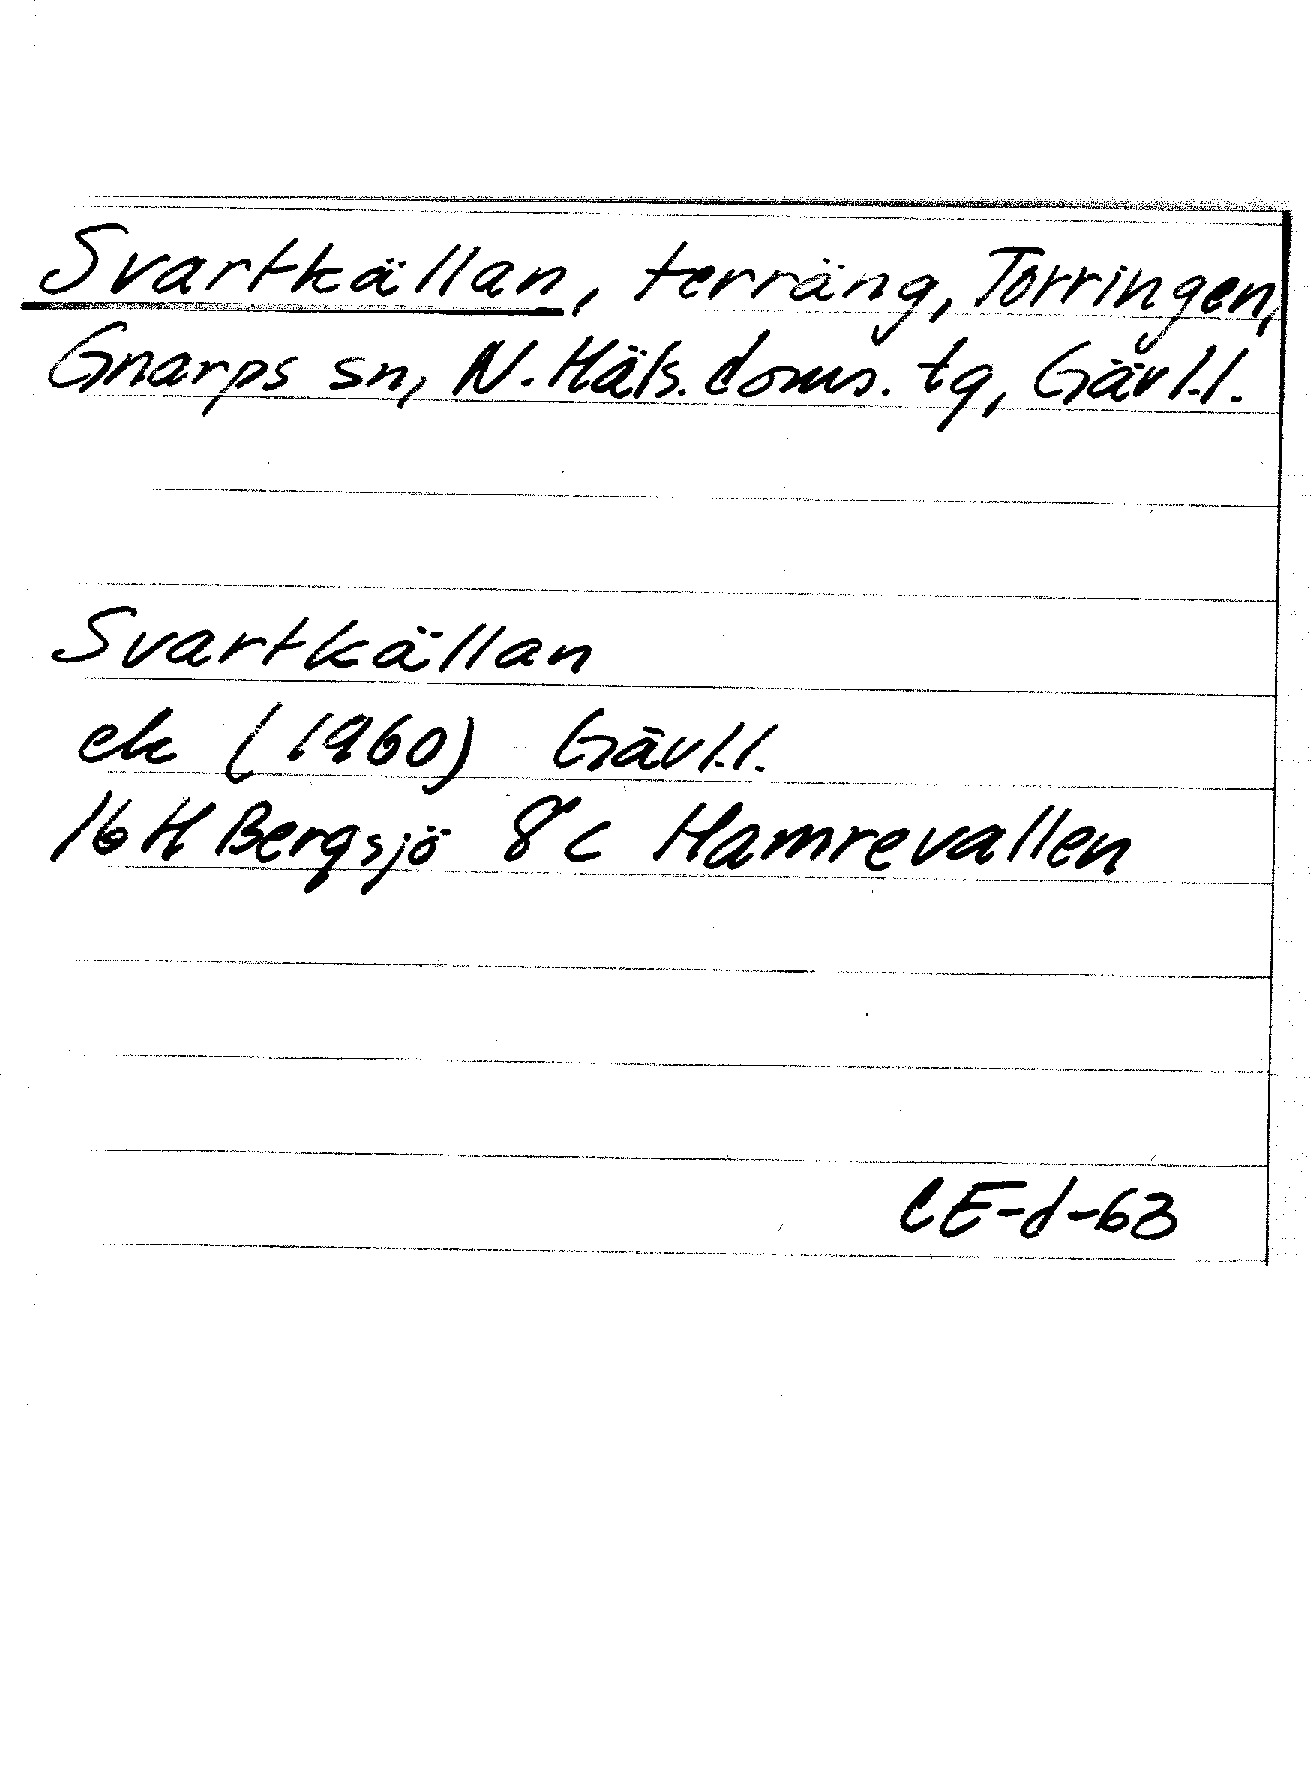 Svartkällan, terräng, Torringen,
Gnarps sn, N. Häls. doms. tg, Gävl.l.
Svartkällan
ek (1960) Gävl.l.
16 H Bergsjö 8 c Hamrevallen
CE-d-63